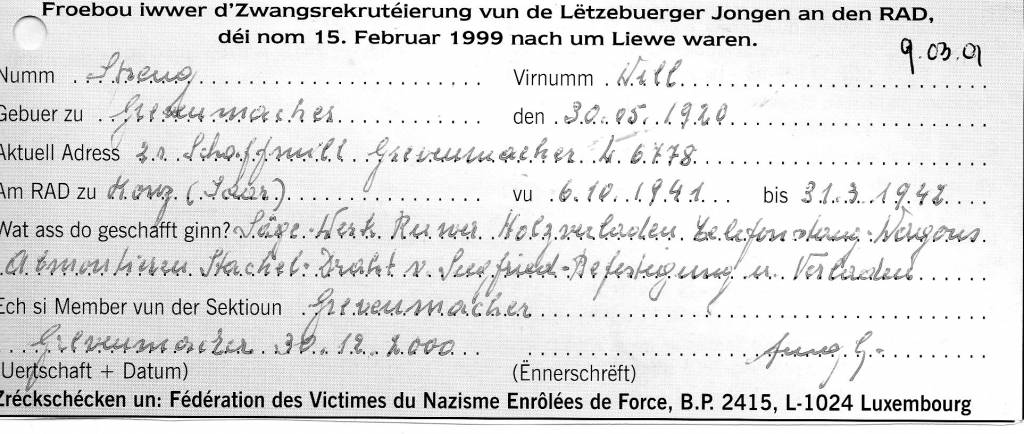 Froebou iwwer d'Zwangsrekrutéierung vun de Lëtzebuerger Jongen an den RAD,
déi nom 15. Februar 1999 nach um Liewe waren.
9.03.01
Numm Streng Virnumm Will
Gebuer zu Grevenmacher den 30.05.1920
Aktuell Adress 21 Schaffmill Grevenmacher L 6778
Am RAD zu Konz (Saar) vu 6.10.1941 bis 31.3.1942
Wat ass do geschafft ginn? Säge-Werk Ruwer Holzverladen Telefonstang-Wagons
Abmontieren Stachel-Draht v. Siegfried-Befestigung u. Verladen
Ech si Member vun der Sektioun Grevenmacher
Grevenmacher 30.12.2000
(Uertschaft + Datum) (Ënnerschrëft)
Zréckschécken un: Fédération des Victimes du Nazisme Enrôlées de Force, B.P. 2415, L-1024 Luxembourg